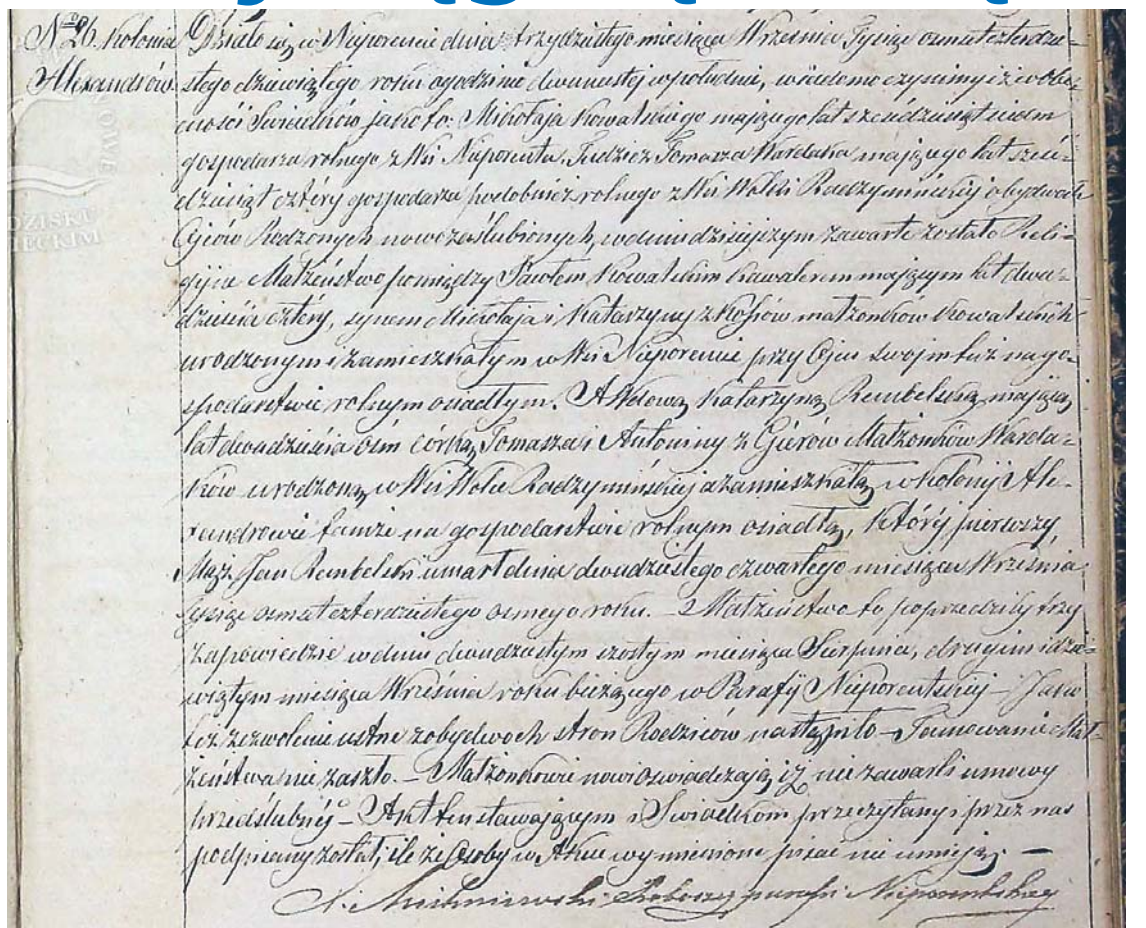 No 26. Kolonia
Alexandrów.
Działo się w Nieporencie dnia trzydziestego miesiąca Września Tysiąc osmset czterdzie-
stego dziewiątego roku o godzinie dwunastej w południe, wiadomo czynimy iż w obec-
ności Świadków jako to: Mikołaja Kowalskiego mającego lat sześćdziesiąt siedm
gospodarza rolnego z Wsi Nieporenta, Tudzież Tomasza Wardaka mającego lat sześć-
dziesiąt cztéry gospodarza podobnież rolnego z Wsi Wólki Radzymińskiej obydwóch
Ojców Rodzonych nowozaślubionych, w dniu dzisiejszym zawarte zostało Reli-
gijne Małżeństwo pomiędzy Pawłem Kowalskim kawalerem mającym lat dwa-
dzieścia cztéry, synem Mikołaja i Katarzyny z Kosiów małżonków Kowalskich
urodzonym i zamieszkałym w Wsi Nieporencie przy Ojcu swojm też na go-
spodarstwie rolnym osiadłym. A Wdową Katarzyną Rembelską mającą
lat dwadzieścia ośm córką Tomasza i Antoniny z Giérów Małżonków Warda-
ków urodzoną w Wsi Wólce Radzymińskiej a zamieszkałą w Kolonij Ale-
xandrowie tamże na gospodarstwie rolnym osiadłą, któréj pierwszy
Mąż Jan Rembelski umarł dnia dwudziestego czwartego miesiąca Września
tysiąc osmset czterdziestego osmego roku. – Małżeństwo to poprzedziły trzy
zapowiedzie w dniu dwudziestym szóstym miesiąca Sierpnia, drugim i dzie-
wiątym miesiąca Września roku bieżącego w Parafij Nieporentskiej – Jako
też zezwolenie ustne z obydwóch stron Rodziców nastąpiło – Tamowanie Mał-
żeństwa nie zaszło. – Małżonkowie nowi oświadczają iż nie zawarli umowy
przedślubnéj – Akt ten stawającym i Świadkom przeczytany i przez nas
podpisany został, ile że Osoby w Akcie wymienione pisać nie umieją. –
Proboszcz parafii Nieporentskiey